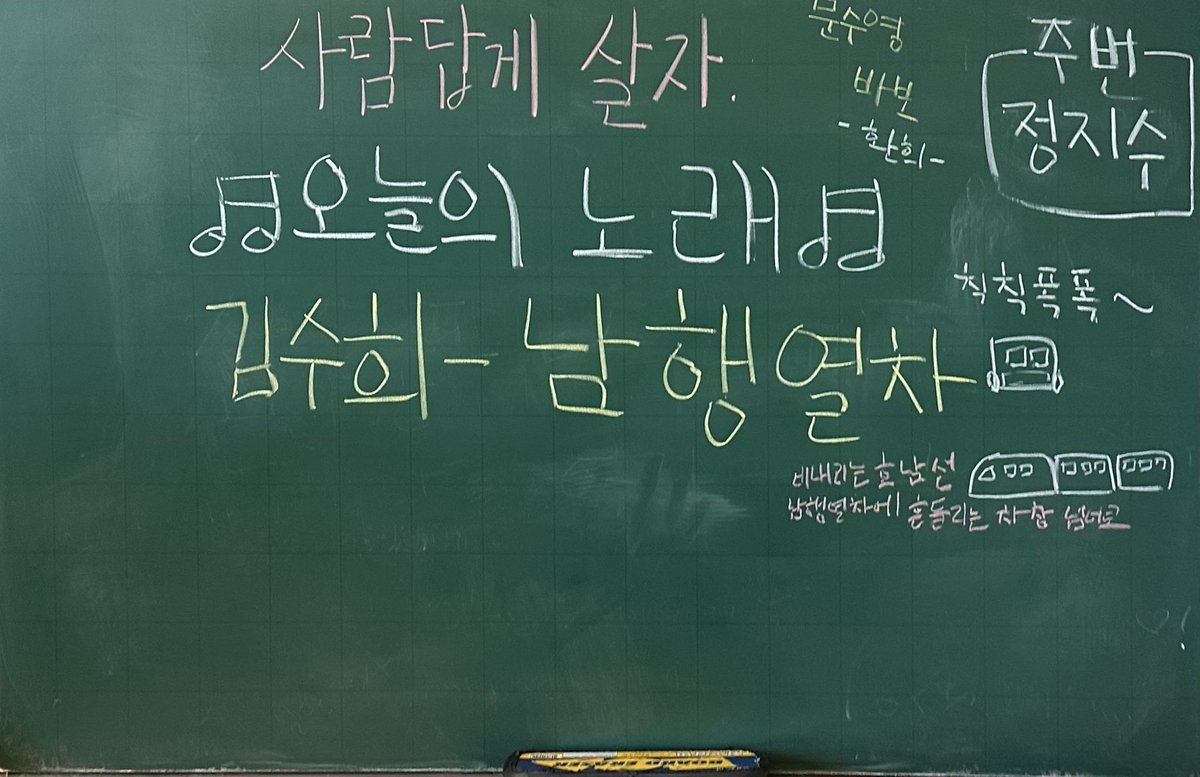 사람답게 살자.
문수영
바보
-환희-
주번
정지수
오늘의 노래
김수희 - 남행열차
칙칙폭폭~
비내리는 호남선
남행열차에 흔들리는 차창 넘너로
!